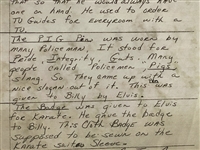 that so that he would always have
one on hand. He used to order
TV Guides for everyroom with a
TV.
The P.I.G Pen was worn by
many Policeman, It stood for
Pride, Integrity, Guts. Many
people called Policemen, Pigs
slang. So They came up with a
nice slogan out of it. This was
given to Billy by Elvis.
The Badge was given to Elvis
for Karate. He gave the badge
to Billy. This Cloth Badge was
supposed to be sewn on the
Karate suites Sleeve.